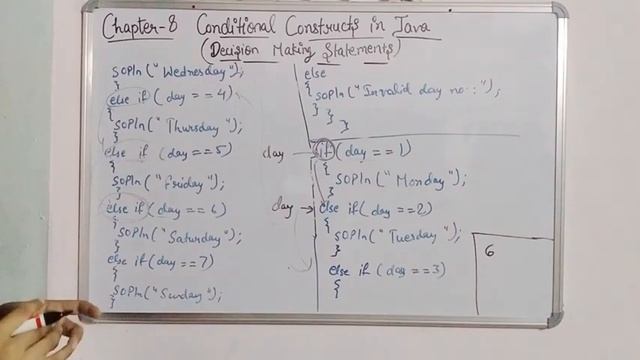 Chapter-8 Conditional Constructs in Java
(Decision Making Statements)
SOPln("Wednesday");
}
else if (day == 4)
{
SOPln("Thursday");
}
else if (day == 5)
{
SOPln("Friday");
}
else if (day == 6)
{
SOPln("Saturday");
}
else if (day == 7)
{
SOPln("Sunday");
}
else
{
SOPln("Invalid day no.:");
}
}
}
day
if (day == 1)
{
SOPln("Monday");
}
day
else if (day == 2)
{
SOPln("Tuesday");
}
else if (day == 3)
{
6